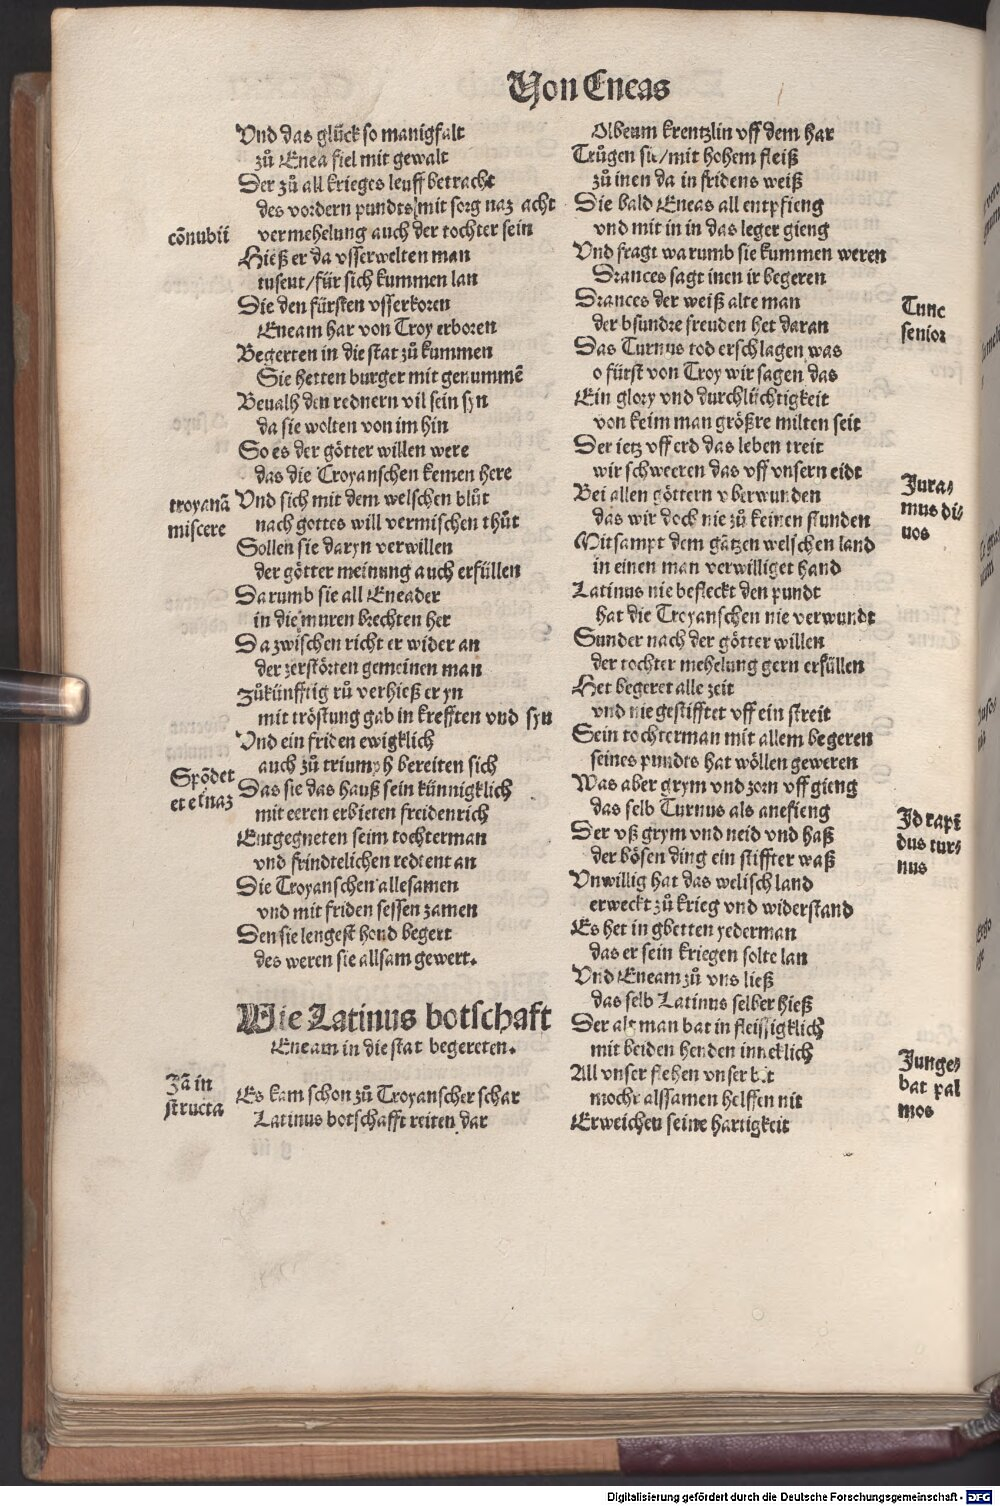 Von Eneas
Vnd das glück so manigfalt
zů Enea fiel mit gewalt
Der zů all krieges leuff betracht
des vordern pundts mit sorg naz acht
cōnubii
vermehelung auch der tochter sein
Hieß er da vsserwelten man
tusent/für sich kummen lan
Die den fürsten vsserkoren
Eneam har von Troy erboren
Begerten in die stat zů kummen
Sie hetten burger mit genummē
Beualh den rednern vil sein syn
da sie wolten von im hin
So es der götter willen were
das die Troyanschen kemen here
troyanā
miscere
Vnd sich mit dem welschen blůt
nach gottes will vermischen thůt
Sollen sie daryn verwillen
der götter meinung auch erfüllen
Darumb sie all Eneader
in die muren brechten her
Da zwischen richt er wider an
der zerstörten gemeinen man
Zůkünfftig rů verhieß er yn
mit tröstung gab in krefften vnd syn
Vnd ein friden ewigklich
auch zů triumph bereiten sich
Spōdet
et etnaz
Das sie das hauß sein künnigklich
mit eeren erbieten freidenrich
Entgegneten seim tochterman
vnd frindtelichen redtent an
Die Troyanschen allesamen
vnd mit friden sessen zamen
Den sie lengest hond begert
des weren sie allsam gewert.
Wie Latinus botschaft
Eneam in die stat begereten.
Jā in
structa
Es kam schon zů Troyanscher schar
Latinus botschafft reiten dar
Olbeum krentzlin vff dem har
Trůgen sie/mit hohem fleiß
zů inen da in fridens weiß
Die bald Eneas all entpfieng
vnd mit in in das leger gieng
Vnd fragt warumb sie kummen weren
Drances sagt inen ir begeren
Tunc
senior
Drances der weiß alte man
der bsundre freuden het daran
Das Turnus tod erschlagen was
o fürst von Troy wir sagen das
Ein glory vnd durchlüchtigkeit
von keim man größre milten seit
Der ietz vff erd das leben treit
wir schweeren das vff vnsern eidt
Jura-
mus di-
uos
Bei allen göttern vberwunden
das wir doch nie zů keinen stunden
Mitsampt dem gātzen welschen land
in einen man verwilliget hand
Latinus nie befleckt den pundt
hat die Troyanschen nie verwundt
Sunder nach der götter willen
der tochter mehelung gern erfüllen
Het begeret alle zeit
vnd nie gestifftet vff ein streit
Sein tochterman mit allem begeren
seines pundts hat wöllen geweren
Was aber grym vnd zorn vff gieng
das selb Turnus als anefieng
Jd rapi
dus tur-
nus
Der vß grym vnd neid vnd haß
der bösen ding ein stiffter waß
Vnwillig hat das welisch land
erweckt zů krieg vnd widerstand
Es het in gbetten yederman
das er sein kriegen solte lan
Vnd Eneam zů vns ließ
das selb Latinus selber hieß
Der alt man bat in fleissigklich
mit beiden henden inneklich
Junge-
bat pal
mos
All vnser flehen vnser bet
mocht alssamen helffen nit
Erweichen seine hartigkeit
Digitalisierung gefördert durch die Deutsche Forschungsgemeinschaft - DFG